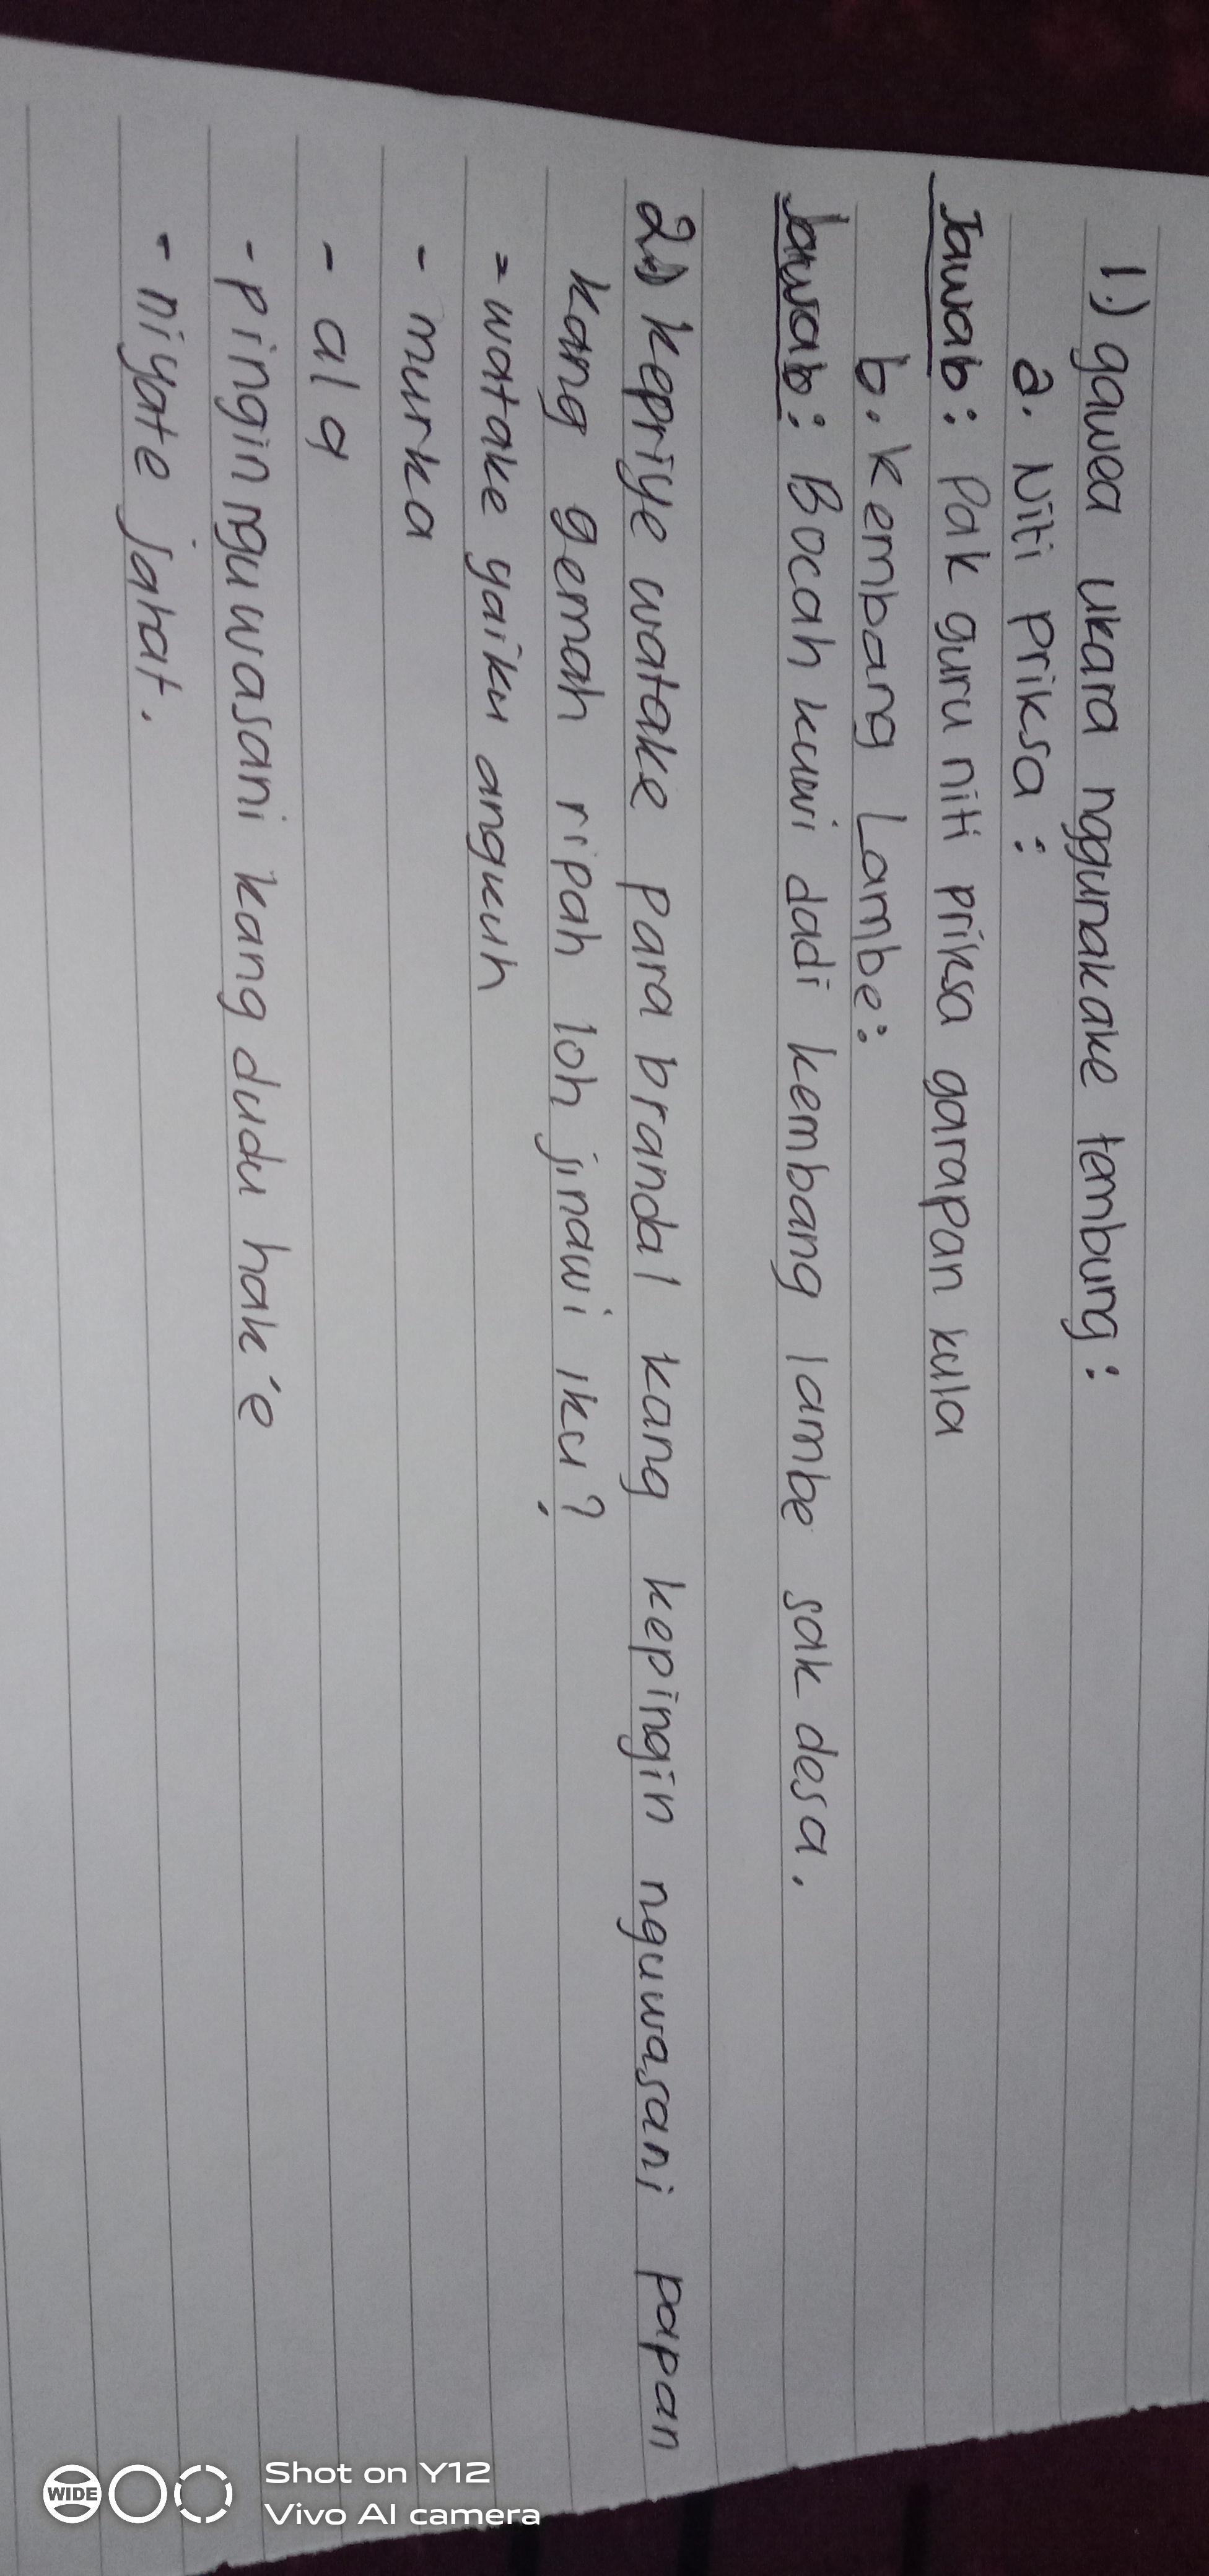 1.) gawea ukara nggunakake tembung :
a. Niti priksa :
Jawab : Pak guru niti priksa garapan kula
b. kembang Lambe :
Jawab : Bocah kuwi dadi kembang lambe sak desa.
2.) kepriye watake para brandal kang kepingin nguwasani papan
kang gemah ripah loh jinawi iku?
= watake yaiku angkuh
- murka
- ala
- pingin nguwasani kang dudu hak'e
- niyate jahat.
WIDE
Shot on Y12
Vivo AI camera